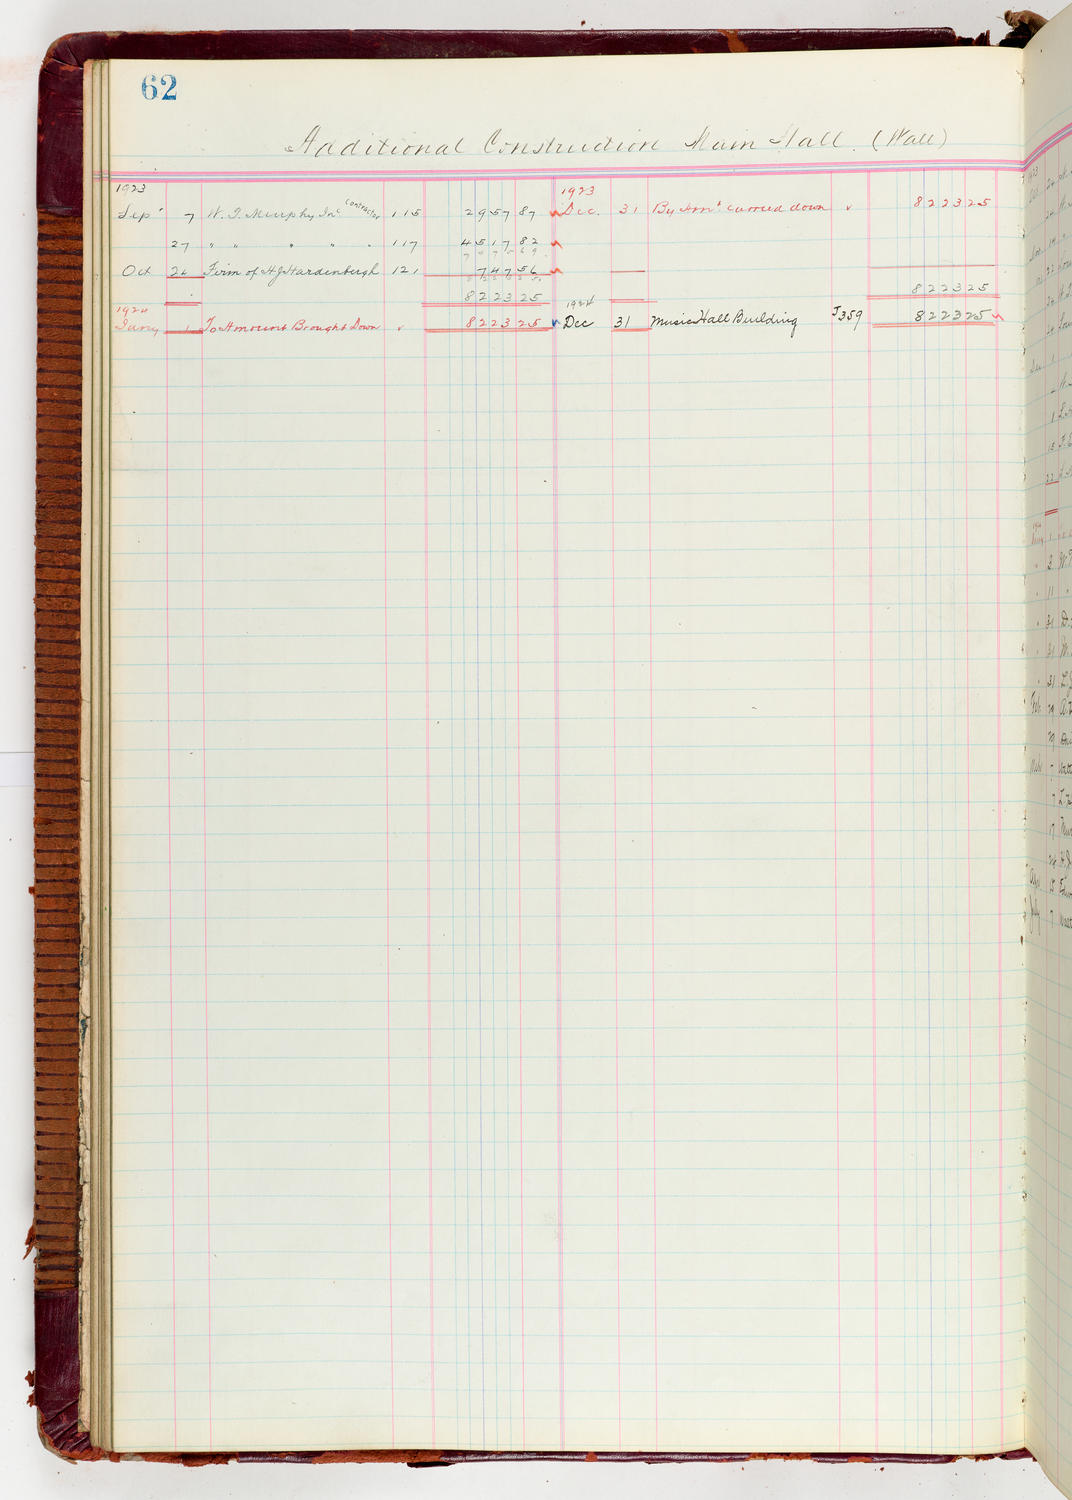 62
Additional Construction Main Hall (Wall)
1923
Sep' 7 W. J. Murphy Inc Contractor 115 2957 87
27 " " " " " 117 4517 82
7475 69
Oct 24 Firm of H J Hardenbergh 121 747 56
8223 25
8223 25
1924
Jany 1 To Amount Brought Down ✓ 8223 25
1923
Dec. 31 By Amt carried down ✓ 8223 25
8223 25
1924
Dec 31 Music Hall Building J359 8223 25